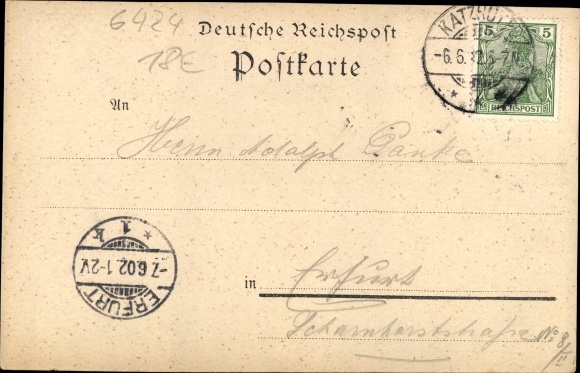 6424
18E
Deutsche Reichspost
Postkarte
KATZHÜTTE
-6.6.02.6-7N.
5
REICHSPOST
An
Herrn Adolph Panke
ERFURT
-7.6.02.1-2V.
* 1 k
in
Erfurt
Scharnhorststraße No. 8/II